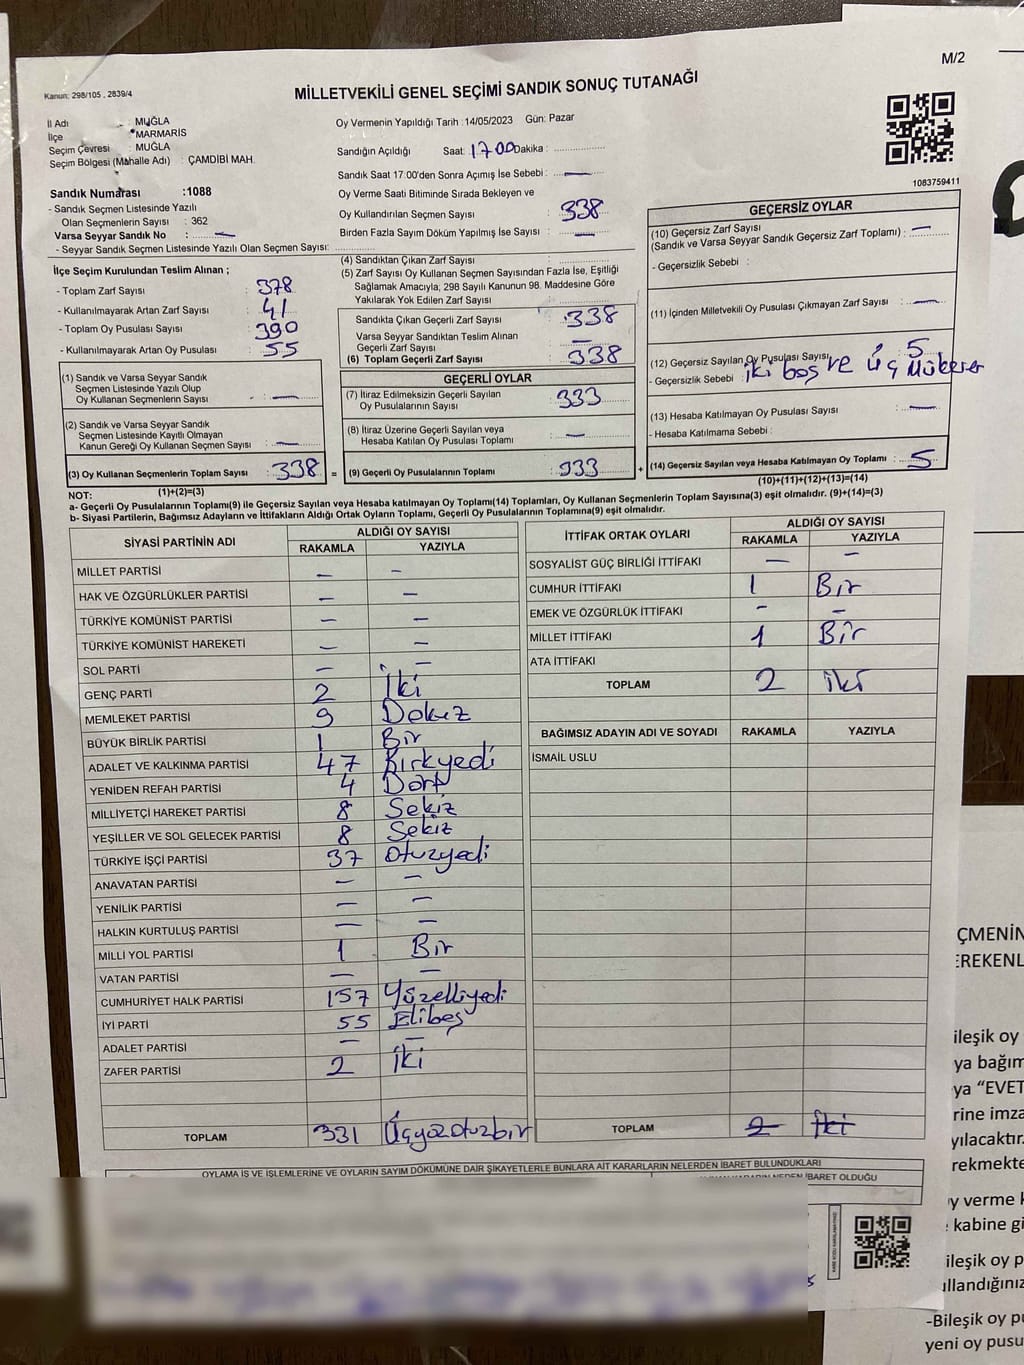 M/2
Kanun: 298/105 , 2839/4
MİLLETVEKİLİ GENEL SEÇİMİ SANDIK SONUÇ TUTANAĞI
İl Adı : MUĞLA
İlçe : MARMARİS
Seçim Çevresi : MUĞLA
Seçim Bölgesi (Mahalle Adı) : ÇAMDİBİ MAH.
Sandık Numarası :1088
- Sandık Seçmen Listesinde Yazılı
Olan Seçmenlerin Sayısı : 362
Varsa Seyyar Sandık No : —
- Seyyar Sandık Seçmen Listesinde Yazılı Olan Seçmen Sayısı:
Oy Vermenin Yapıldığı Tarih :14/05/2023 Gün: Pazar
Sandığın Açıldığı Saat: 17 00 Dakika :
Sandık Saat 17:00'den Sonra Açımış İse Sebebi : —
Oy Verme Saati Bitiminde Sırada Bekleyen ve
Oy Kullandırılan Seçmen Sayısı : 338
Birden Fazla Sayım Döküm Yapılmış İse Sayısı : —
1083759411
İlçe Seçim Kurulundan Teslim Alınan ;
- Toplam Zarf Sayısı : 378
- Kullanılmayarak Artan Zarf Sayısı : 41
- Toplam Oy Pusulası Sayısı : 390
- Kullanılmayarak Artan Oy Pusulası : 55
(1) Sandık ve Varsa Seyyar Sandık
Seçmen Listesinde Yazılı Olup
Oy Kullanan Seçmenlerin Sayısı : —
(2) Sandık ve Varsa Seyyar Sandık
Seçmen Listesinde Kayıtlı Olmayan
Kanun Gereği Oy Kullanan Seçmen Sayısı : —
(3) Oy Kullanan Seçmenlerin Toplam Sayısı : 338 =
(1)+(2)=(3)
(4) Sandıktan Çıkan Zarf Sayısı :
(5) Zarf Sayısı Oy Kullanan Seçmen Sayısından Fazla İse, Eşitliği
Sağlamak Amacıyla, 298 Sayılı Kanunun 98. Maddesine Göre
Yakılarak Yok Edilen Zarf Sayısı :
Sandıkta Çıkan Geçerli Zarf Sayısı : 338
Varsa Seyyar Sandıktan Teslim Alınan
Geçerli Zarf Sayısı : —
(6) Toplam Geçerli Zarf Sayısı : 338
GEÇERLİ OYLAR
(7) İtiraz Edilmeksizin Geçerli Sayılan
Oy Pusulalarının Sayısı : 333
(8) İtiraz Üzerine Geçerli Sayılan veya
Hesaba Katılan Oy Pusulası Toplamı : —
(9) Geçerli Oy Pusulalarının Toplamı : 333 +
GEÇERSİZ OYLAR
(10) Geçersiz Zarf Sayısı
(Sandık ve Varsa Seyyar Sandık Geçersiz Zarf Toplamı) : —
- Geçersizlik Sebebi :
(11) İçinden Milletvekili Oy Pusulası Çıkmayan Zarf Sayısı : —
(12) Geçersiz Sayılan Oy Pusulası Sayısı 5
- Geçersizlik Sebebi : iki boş ve üç Mükerer
(13) Hesaba Katılmayan Oy Pusulası Sayısı : —
- Hesaba Katılmama Sebebi :
(14) Geçersiz Sayılan veya Hesaba Katılmayan Oy Toplamı : 5
(10)+(11)+(12)+(13)=(14)
NOT:
a- Geçerli Oy Pusulalarının Toplamı(9) ile Geçersiz Sayılan veya Hesaba katılmayan Oy Toplamı(14) Toplamları, Oy Kullanan Seçmenlerin Toplam Sayısına(3) eşit olmalıdır. (9)+(14)=(3)
b- Siyasi Partilerin, Bağımsız Adayların ve İttifakların Aldığı Ortak Oyların Toplamı, Geçerli Oy Pusulalarının Toplamına(9) eşit olmalıdır.
SİYASİ PARTİNİN ADI ALDIĞI OY SAYISI
RAKAMLA YAZIYLA
MİLLET PARTİSİ — —
HAK VE ÖZGÜRLÜKLER PARTİSİ — —
TÜRKİYE KOMÜNİST PARTİSİ — —
TÜRKİYE KOMÜNİST HAREKETİ — —
SOL PARTİ — —
GENÇ PARTİ 2 İki
MEMLEKET PARTİSİ 9 Dokuz
BÜYÜK BİRLİK PARTİSİ 1 Bir
ADALET VE KALKINMA PARTİSİ 47 Kırkyedi
YENİDEN REFAH PARTİSİ 4 Dört
MİLLİYETÇİ HAREKET PARTİSİ 8 Sekiz
YEŞİLLER VE SOL GELECEK PARTİSİ 8 Sekiz
TÜRKİYE İŞÇİ PARTİSİ 37 otuzyedi
ANAVATAN PARTİSİ — —
YENİLİK PARTİSİ — —
HALKIN KURTULUŞ PARTİSİ — —
MİLLİ YOL PARTİSİ 1 Bir
VATAN PARTİSİ — —
CUMHURİYET HALK PARTİSİ 157 Yüzelliyedi
İYİ PARTİ 55 Elibeş
ADALET PARTİSİ — —
ZAFER PARTİSİ 2 İki
TOPLAM 331 Üçyüzotuzbir
İTTİFAK ORTAK OYLARI ALDIĞI OY SAYISI
RAKAMLA YAZIYLA
SOSYALİST GÜÇ BİRLİĞİ İTTİFAKI — —
CUMHUR İTTİFAKI 1 Bir
EMEK VE ÖZGÜRLÜK İTTİFAKI — —
MİLLET İTTİFAKI 1 Bir
ATA İTTİFAKI
TOPLAM 2 iki
BAĞIMSIZ ADAYIN ADI VE SOYADI RAKAMLA YAZIYLA
İSMAİL USLU
TOPLAM 2 İki
OYLAMA İŞ VE İŞLEMLERİNE VE OYLARIN SAYIM DÖKÜMÜNE DAİR ŞİKAYETLERLE BUNLARA AİT KARARLARIN NELERDEN İBARET BULUNDUKLARI
İBARET OLDUĞU
ÇMENİN
EREKENL
ileşik oy
ya bağım
ya "EVET
rine imza
yılacaktır.
rekmekte
y verme k
kabine gi
ileşik oy p
ullandığınız
-Bileşik oy pu
yeni oy pusu